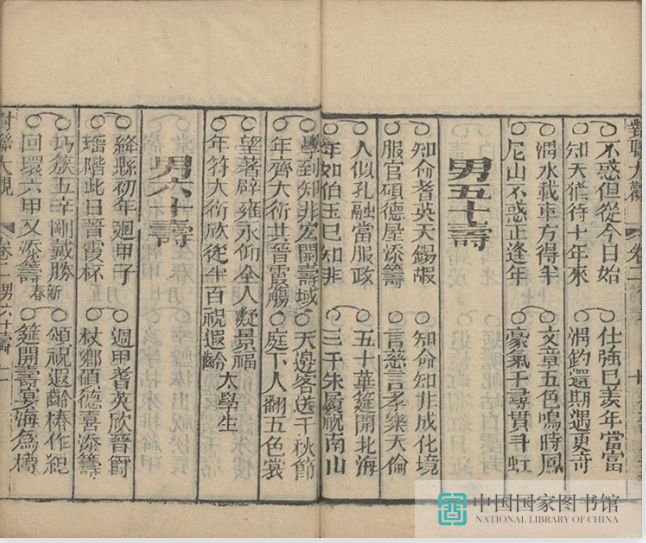 對聯大觀 卷二 十
不惑但從今日始 仕強已羨年當富
知天猶待十年來 渭釣還期遇更奇
渭水載車方得半 文章五色鳴時鳳
尼山不惑正逢年 豪氣千尋貫斗虹
男五十壽
知命耆英天錫嘏 知命知非成化境
服官碩德屋添籌 言慈言孝樂天倫
人似孔融當服政 五十華筵開北海
年如伯玉已知非 三千朱履祝南山
學到知非宏開壽域 天邊客送千秋節
年齊大衍共晉霞觴 庭下人翻五色裳
望著辟雍永仰全人凝景福
年符大衍欣從半百祝遐齡 太學生
男六十壽
絳縣初年週甲子 週甲耆英欣晉爵
瑤階此日晉霞杯 杖鄉碩德喜添籌
巧簇五辛剛戴勝 新 頌祝遐齡椿作紀
回環六甲又添籌 春 筵開壽宴海為樽
對聯大觀 卷二 男六十壽 十一
中国国家图书馆
NATIONAL LIBRARY OF CHINA